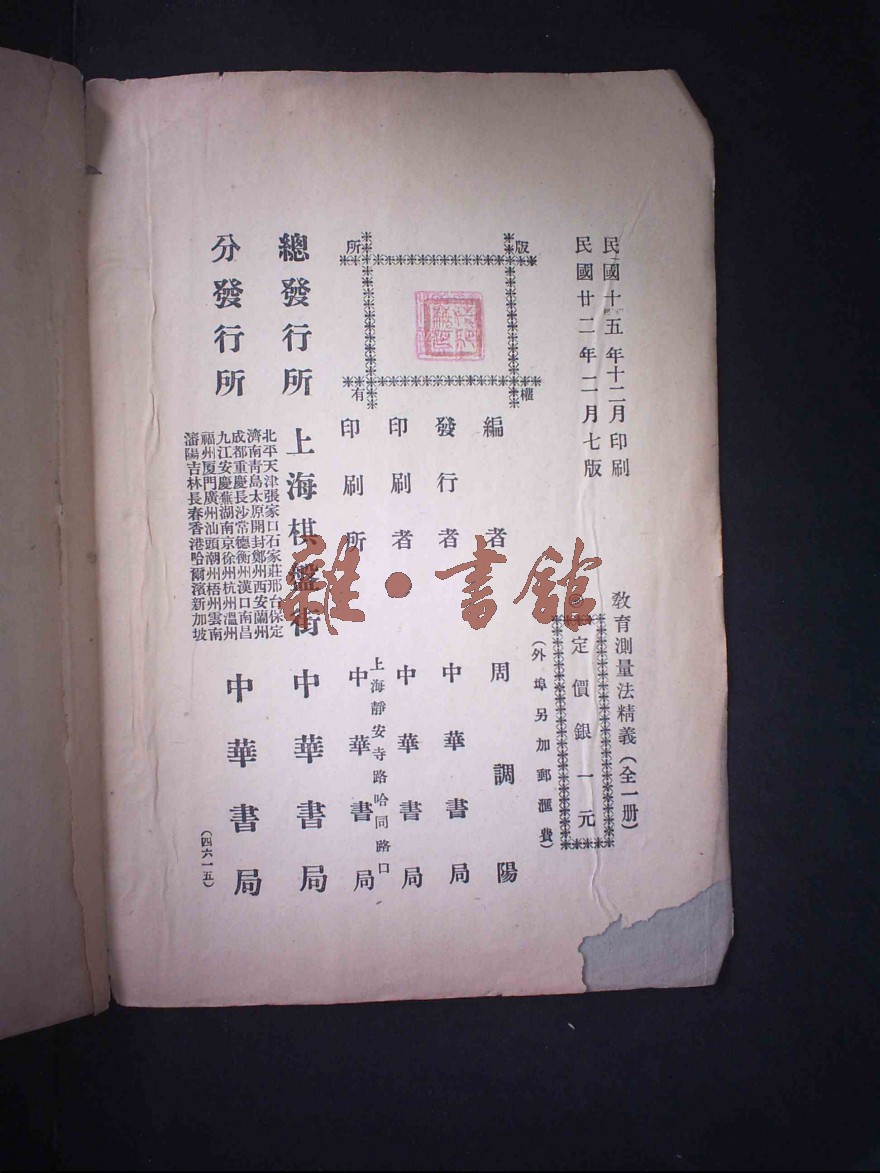 民國十五年十二月印刷
民國廿二年二月七版
教育測量法精義（全一册）
定價銀一元
（外埠另加郵滙費）
版權所有
編者 周調陽
發行者 中華書局
印刷者 中華書局
上海靜安寺路哈同路口
印刷所 中華書局
總發行所 上海棋盤街 中華書局
分發行所 中華書局
北平天津張家口石家莊邢台保定
濟南青島太原開封鄭州西安蘭州
成都重慶長沙常德衡州漢口南昌
九江安慶蕪湖南京徐州杭州溫州
福州厦門廣州汕頭潮州梧州雲南
瀋陽吉林長春香港哈爾濱新加坡
（四六一五）
雜·書館